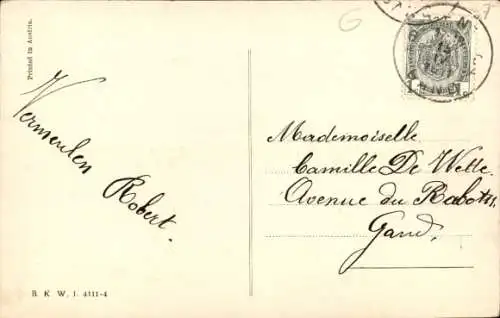 Printed in Austria.
Vermeulen
Robert.
B. K. W. I. 4311-4
G
1
1
Mademoiselle
Camille De Welle
Avenue du Rabot
Gand,